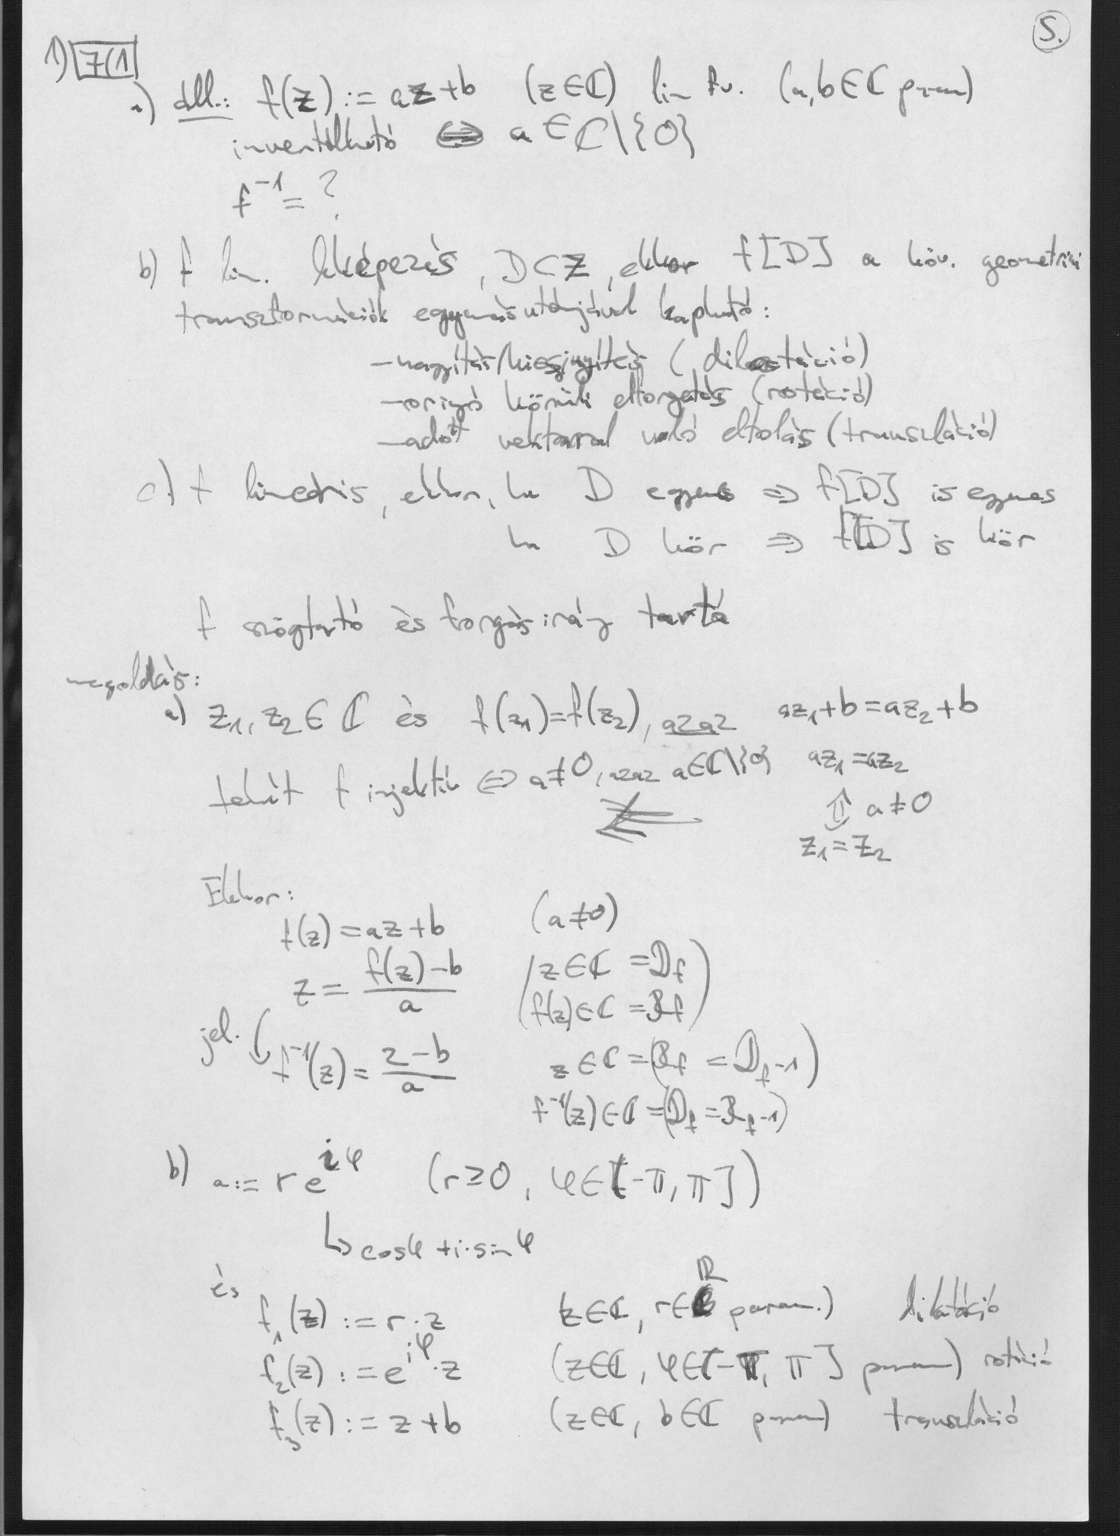 5.
1) 7/1
a) áll.: f(z) := az+b (z∈ℂ) lin fv. (a,b∈ℂ param)
invertálható ⇔ a∈ℂ\{0}
f⁻¹ = ?
b) f lin. leképezés, D⊂Z, ekkor f[D] a köv. geometriai
transzformációk egymásutánjával kapható:
- nagyítás/kicsinyítés (dilatáció)
- origó körüli elforgatás (rotáció)
- adott vektorral való eltolás (transzláció)
c) f lineáris, ekkor, ha D egyenes ⇒ f[D] is egyenes
ha D kör ⇒ f[D] is kör
f szögtartó és forgásirány tartó
megoldás:
a) z₁, z₂ ∈ ℂ és f(z₁)=f(z₂), azaz az₁+b=az₂+b
az₁=az₂
tehát f injektív ⇔ a≠0, azaz a∈ℂ\{0}
⇕ a≠0
z₁=z₂
Ekkor:
f(z) = az+b (a≠0)
z = (f(z)-b)/a (z∈ℂ = D_f
f(z)∈ℂ = R_f)
jel. f⁻¹(z) = (z-b)/a z∈ℂ = (R_f = D_f⁻¹)
f⁻¹(z)∈ℂ = (D_f = R_f⁻¹)
b) a := r e^{iφ} (r≥0, φ∈[-π, π])
↳ cosφ + i·sinφ
és
f₁(z) := r·z (z∈ℂ, r∈ℝ param.) dilatáció
f₂(z) := e^{iφ}·z (z∈ℂ, φ∈[-π, π] param) rotáció
f₃(z) := z+b (z∈ℂ, b∈ℂ param) transzláció